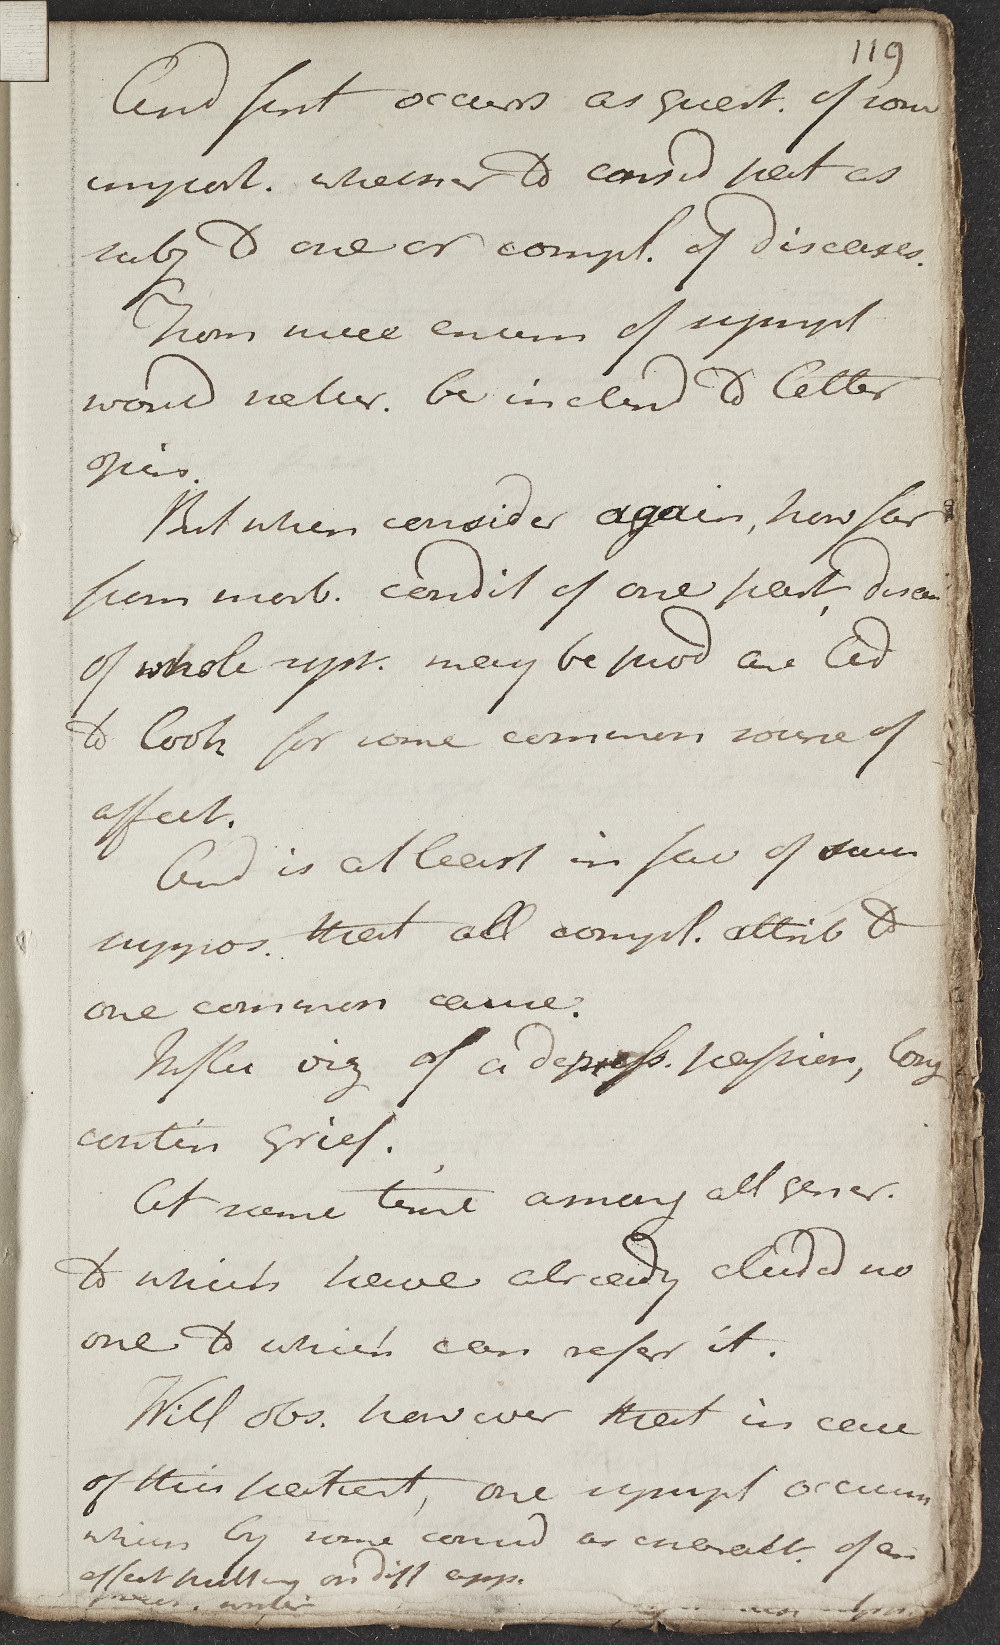 119
And first occurs as quest. of some
import. whether to consid pat as
subj to one or compl. of diseases.
From mere enum of sympt
would rather. be inclend to latter
opin.
But when consider again, how far
from morb. condit of one part, diseas
of whole syst. may be prod are led
to look for some common sourse of
affect.
And is at least in fav of same
suppos. that all compl. attrib to
one common cause.
Influ viz of a depress. passion, long
contin grief.
At same time among all gener.
to which have already alluded no
one to which can refer it.
Will obs. however that in case
of this patient, one sympt occurs
which by some consid as of an
affect putting on diff app.